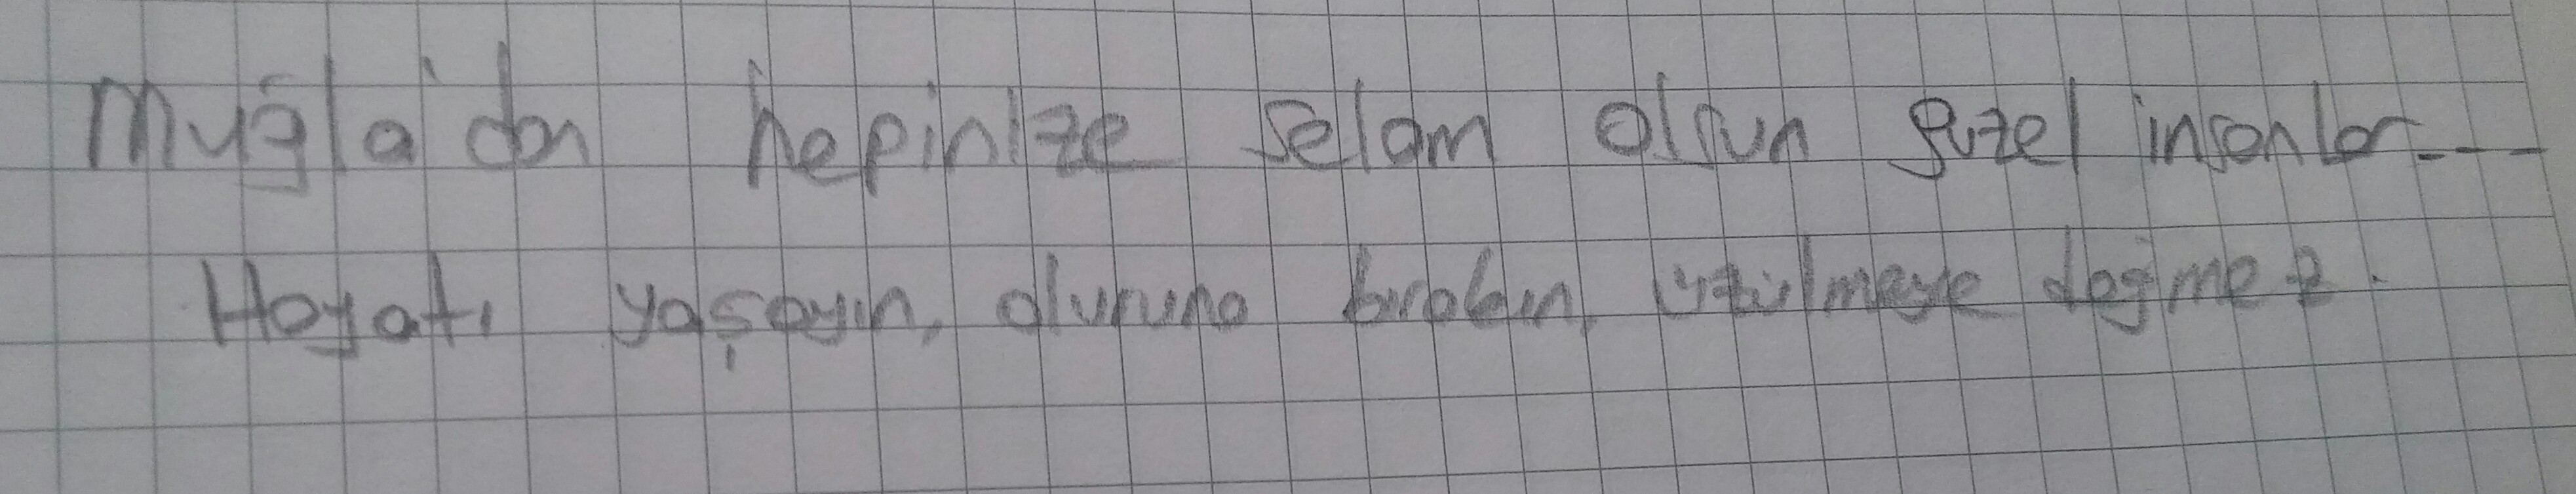 Muğla'dan hepinize selam olsun güzel insanlar....
Hayatı yaşayın, oluruna bırakın, üzülmeye değmez.